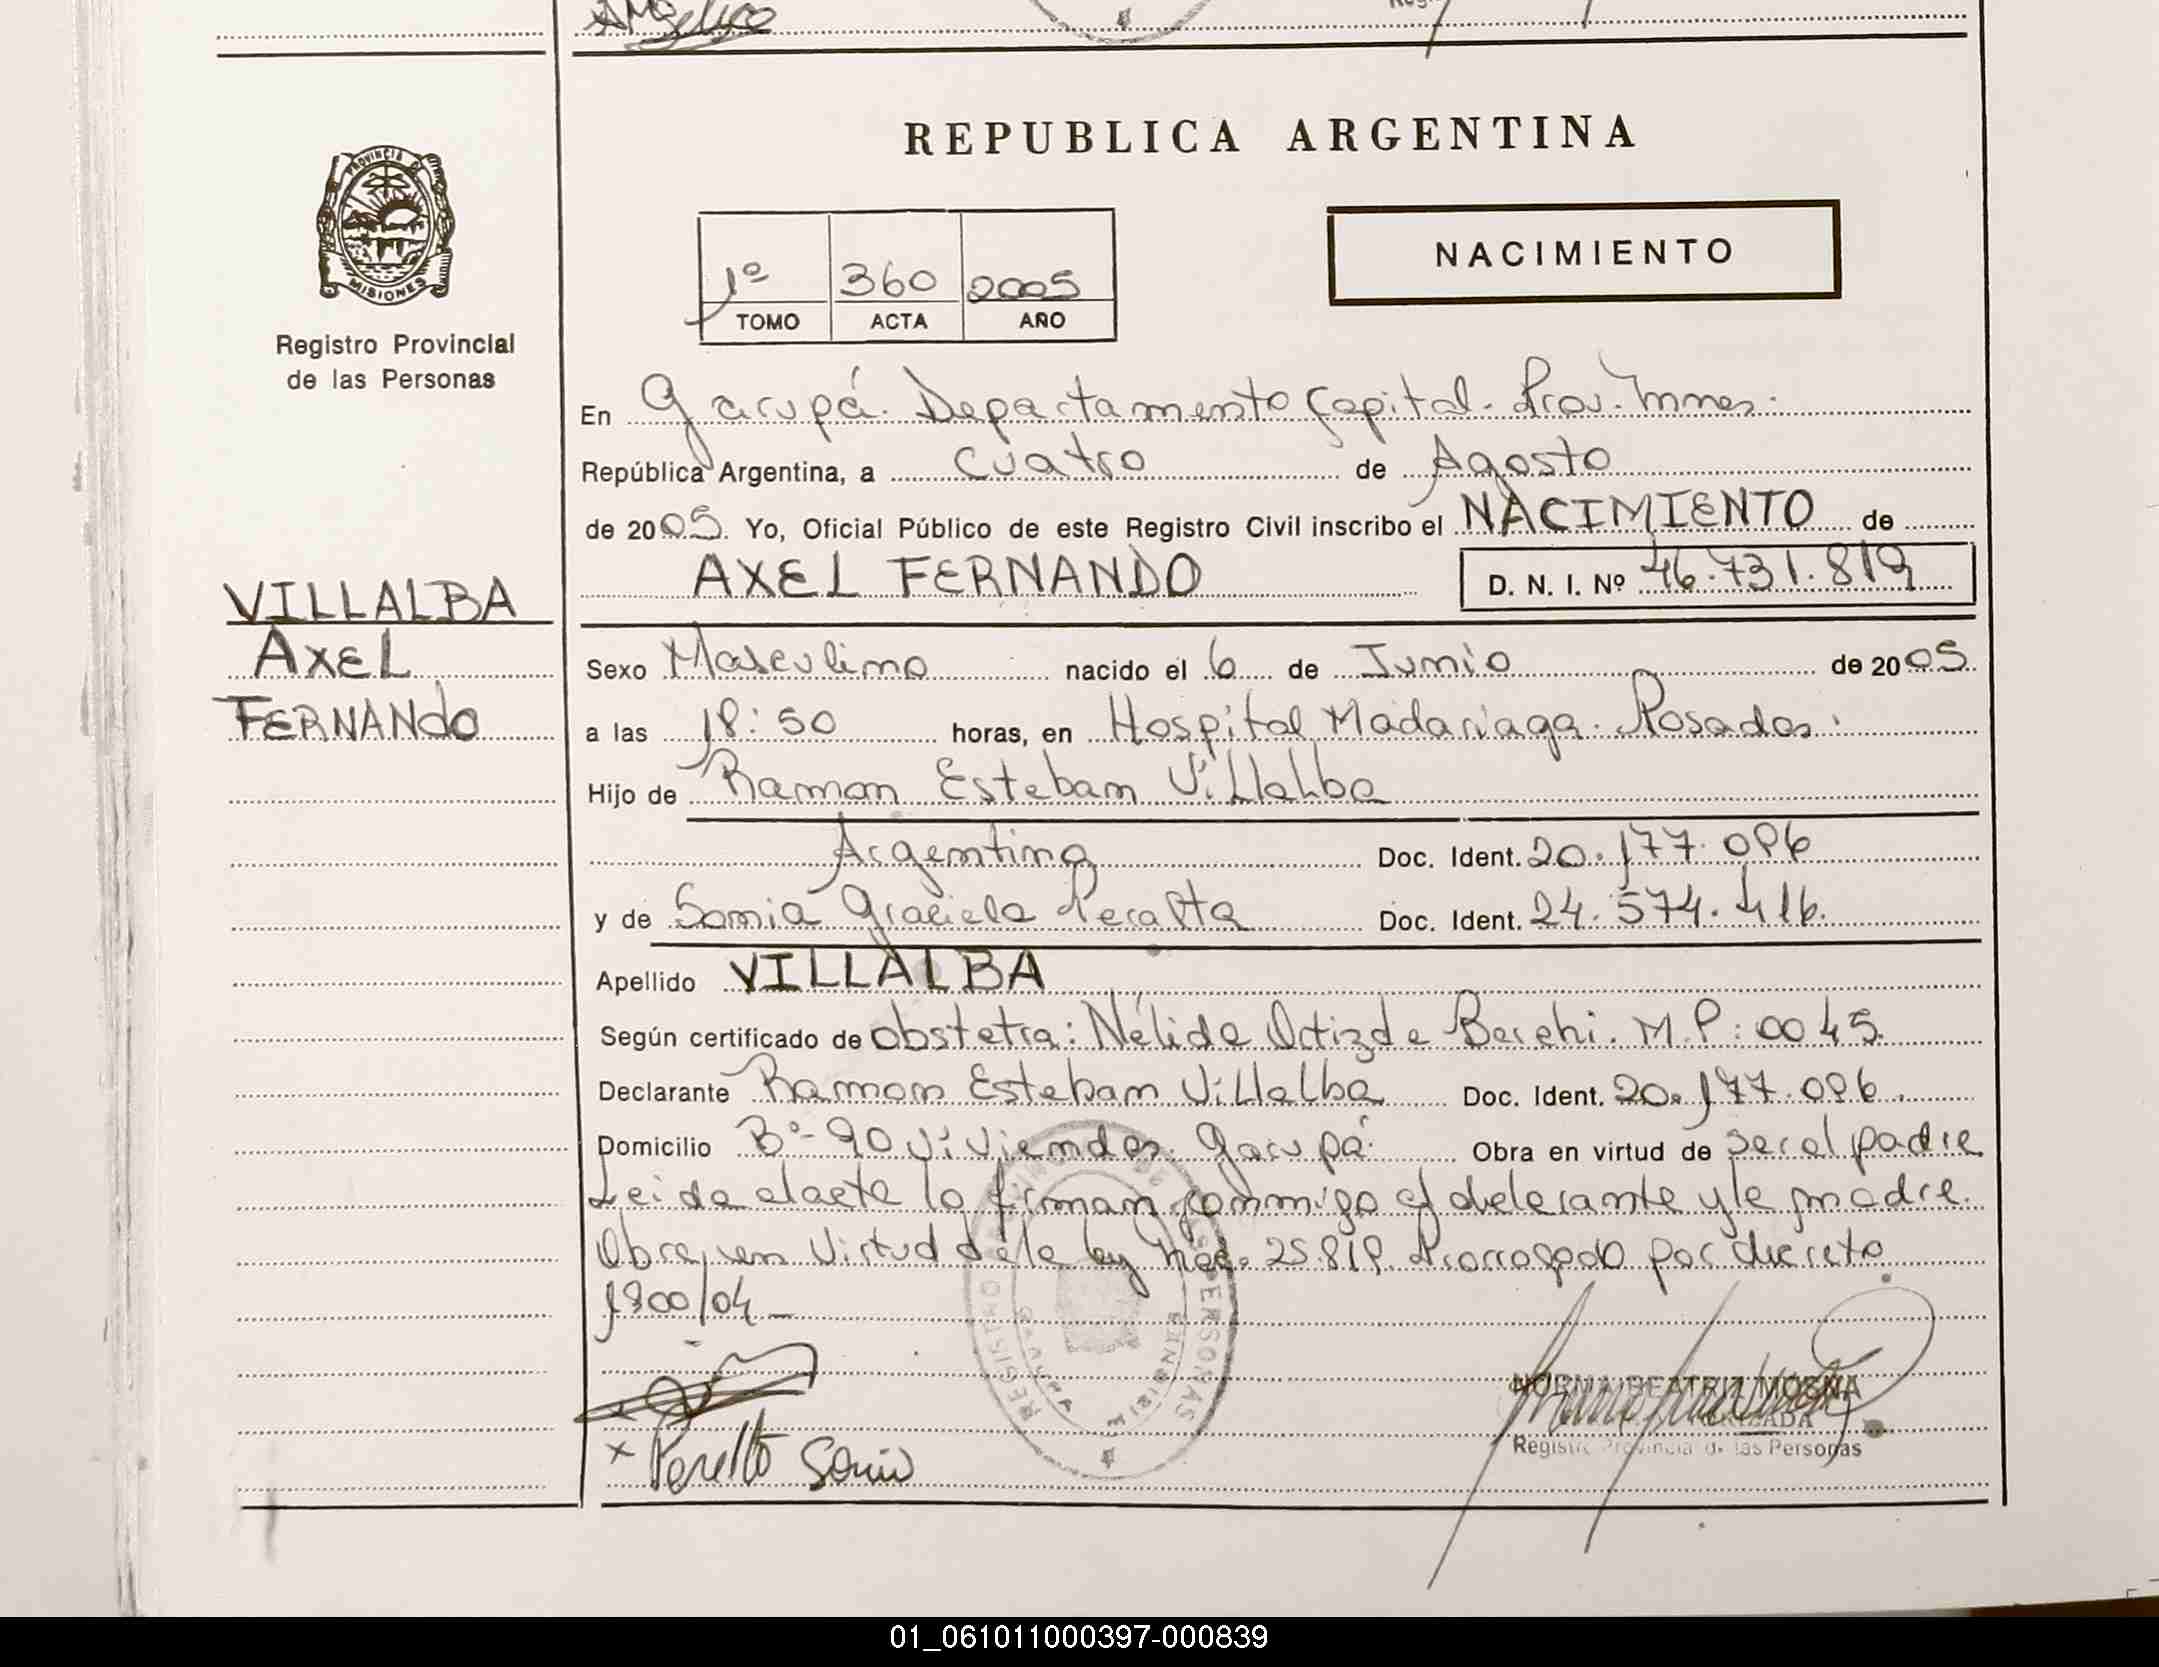 REPUBLICA ARGENTINA
PROVINCIA DE MISIONES
Registro Provincial
de las Personas
1º 360 2005
TOMO ACTA AÑO
NACIMIENTO
En Garupá. Departamento Capital. Prov. Mnes.
República Argentina, a cuatro de Agosto
de 2005. Yo, Oficial Público de este Registro Civil inscribo el NACIMIENTO de
AXEL FERNANDO D. N. I. Nº 46.731.819
VILLALBA
AXEL
FERNANDO
Sexo Masculino nacido el 6 de Junio de 2005
a las 18:50 horas, en Hospital Madariaga. Posadas.
Hijo de Ramon Esteban Villalba
Argentino Doc. Ident. 20.177.096
y de Sonia Graciela Peralta Doc. Ident. 24.574.416.
Apellido VILLALBA
Según certificado de obstetra: Nélida Ortiz de M.P: 0045.
Declarante Ramon Esteban Villalba Doc. Ident. 20.177.096.
Domicilio Bº-90 Viviendas. Garupá. Obra en virtud de ser el padre
Leida el acta la firman conmigo el declarante y la madre.
Obra, en Virtud de la ley 25.819. Prorrogado por decreto
1300/04_
x Peralta Sonia
REGISTRO PROVINCIAL DE LAS PERSONAS
GARUPA MISIONES
NORMA BEATRIZ MOSNA
Registro Provincial de las Personas
01_061011000397-000839